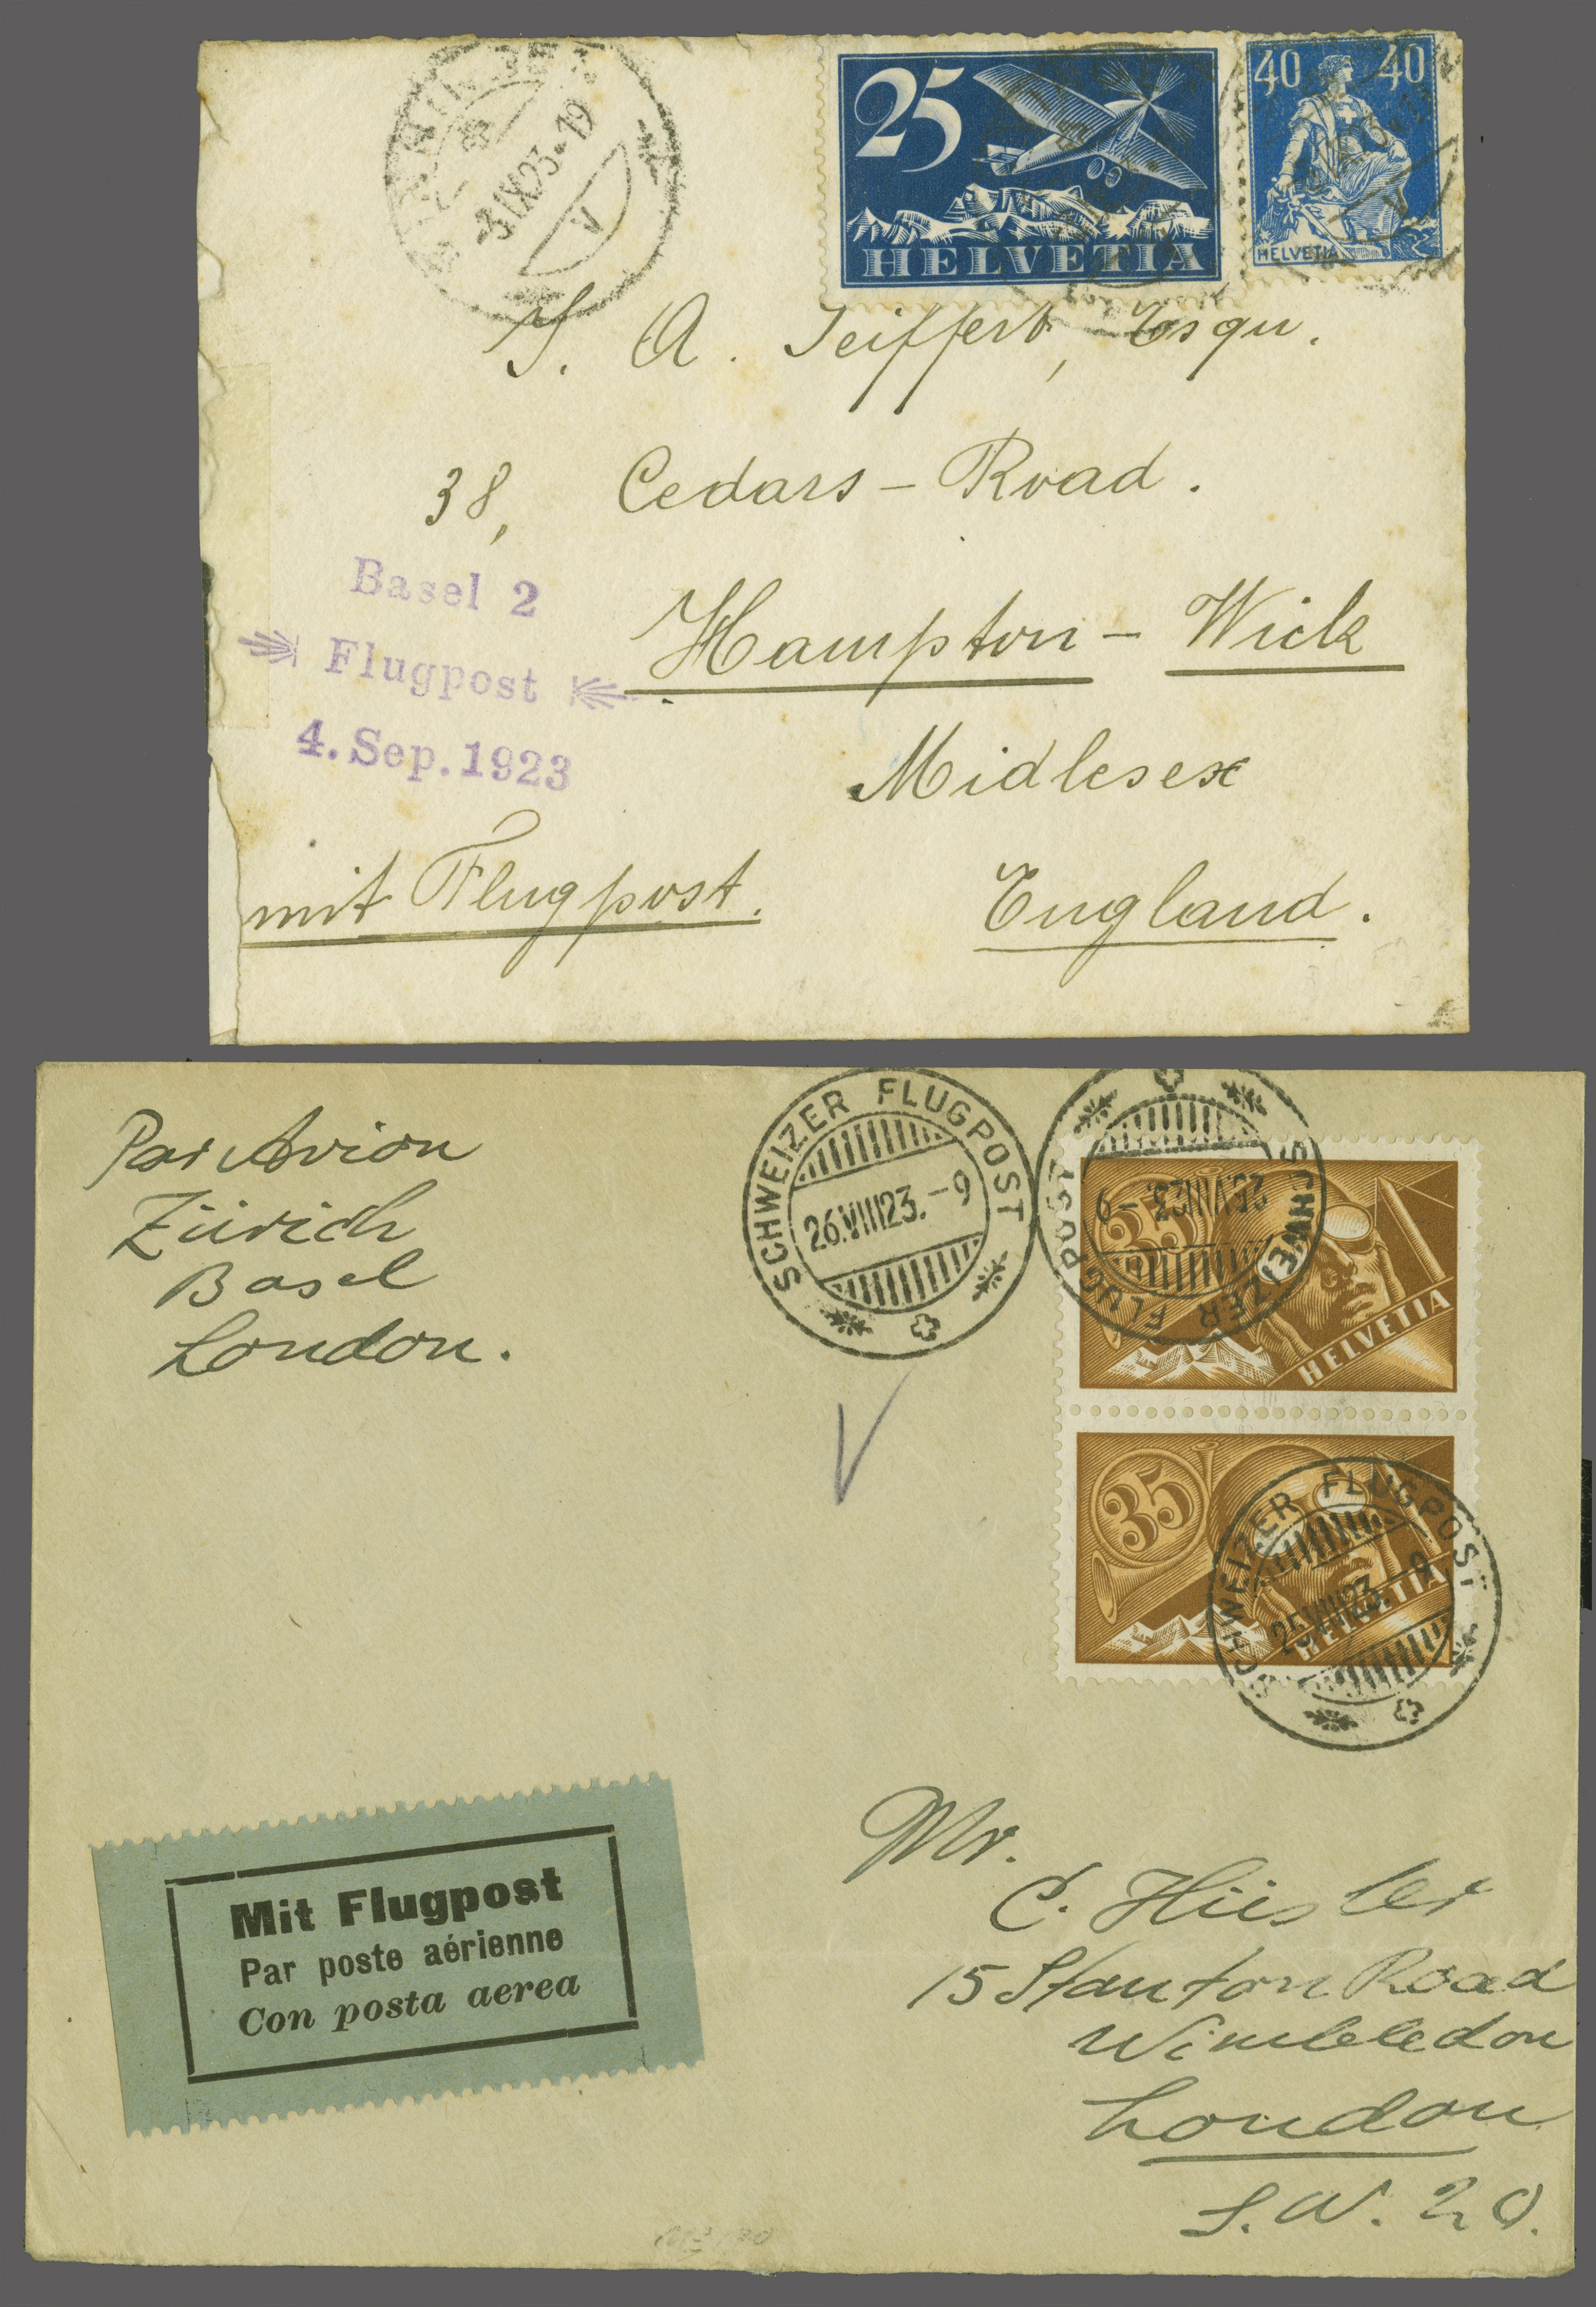 -3.IX.23-19
V
25
HELVETIA
40 40
HELVETIA
J. A. Seiffert, Esqu.
38, Cedars-Road.
Basel 2
Flugpost
4. Sep. 1923
Hampton-Wick
Midlesex
mit Flugpost.
England.
Par Avion
Zürich
Basel
London.
SCHWEIZER FLUGPOST
26.VIII23.-9
SCHWEIZER FLUGPOST
25.VIII23.-9
35
HELVETIA
35
HELVETIA
SCHWEIZER FLUGPOST
25.VIII23.-9
Mit Flugpost
Par poste aérienne
Con posta aerea
Mr.
C. Hüsler
15 Stanton Road
Wimbledon
London
S.W. 20.